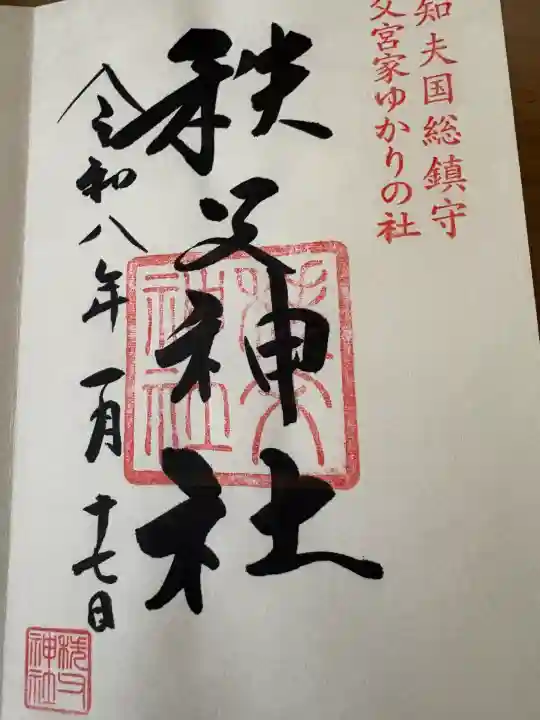 知夫国総鎮守
父宮家ゆかりの社
秩父神社
令和八年一月十七日
秩父神社
秩父神社